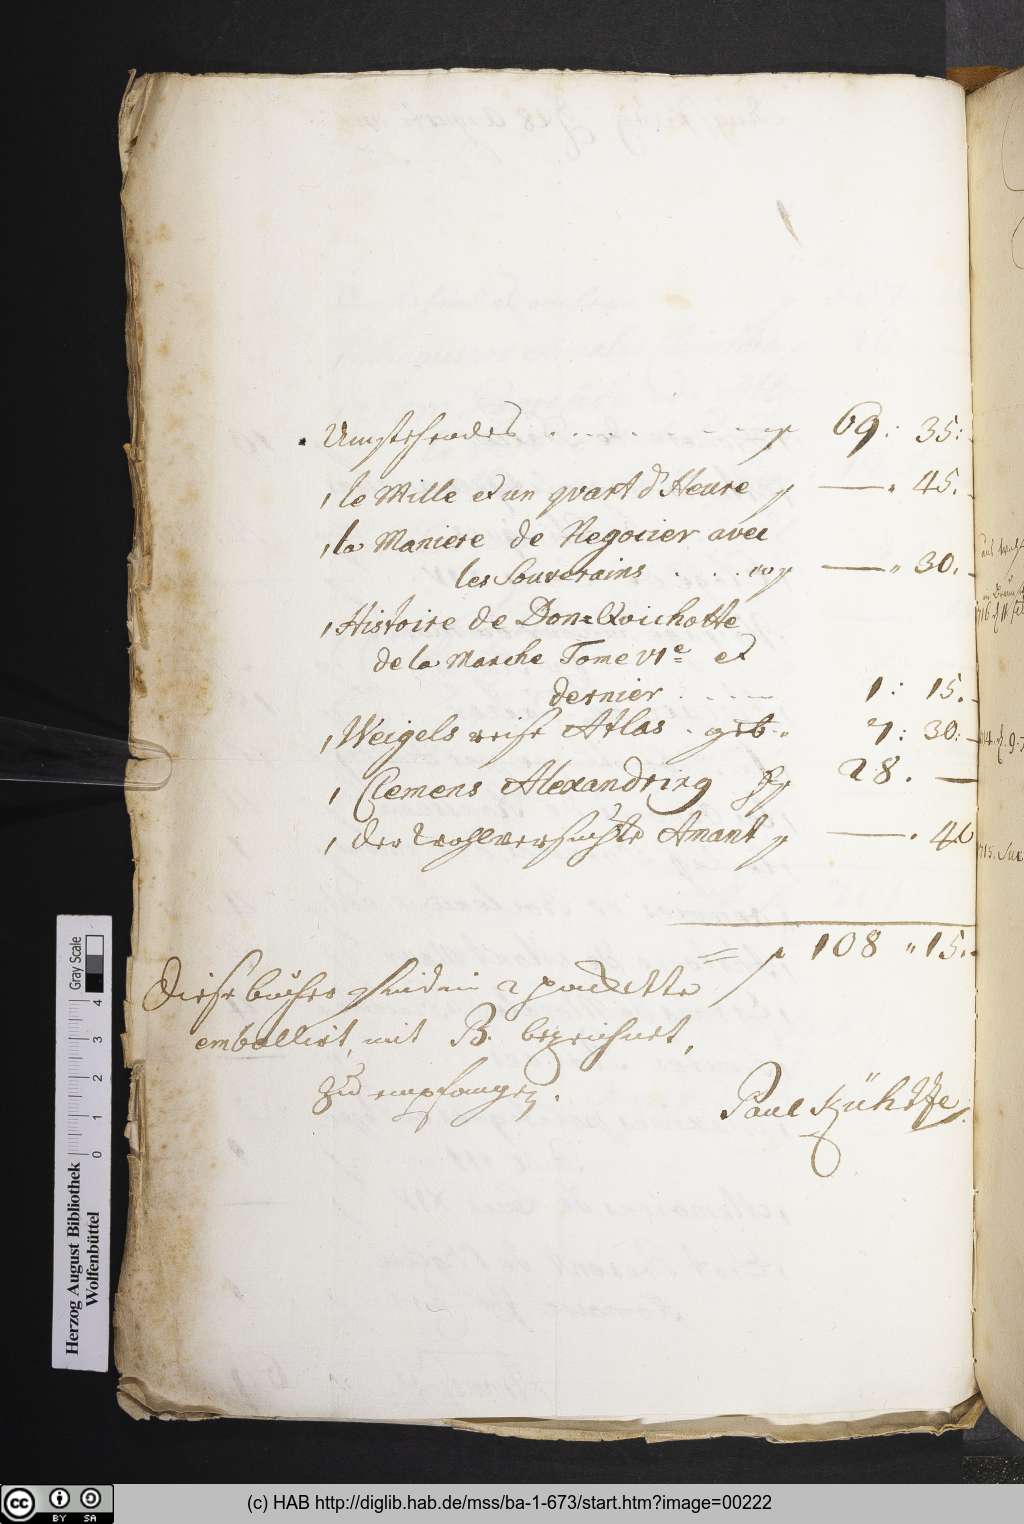 Umstehendes . . . . . . . . 69: 35:
1 le Mille et un quart d'Heure — 45.
1 la Maniere de Negocier avec
les Souverains . . . — 30.
1 Histoire de Don=Quichotte
de la Manche Tome VIe et
dernier . . . . 1: 15.
1 Weigels reise Atlas . geb. 7: 30:
1 Clemens Alexandring 28. —
1 der wohlversuchte Amant — . 40
= 108 " 15.
Diese bücher sind in 2 packette
emballirt, mit B. bezeichnet,
zu empfangen.
Paul Kühtze
Herzog August Bibliothek
Wolfenbüttel
0 1 2 3 4
Gray Scale
cc BY SA
(c) HAB http://diglib.hab.de/mss/ba-1-673/start.htm?image=00222